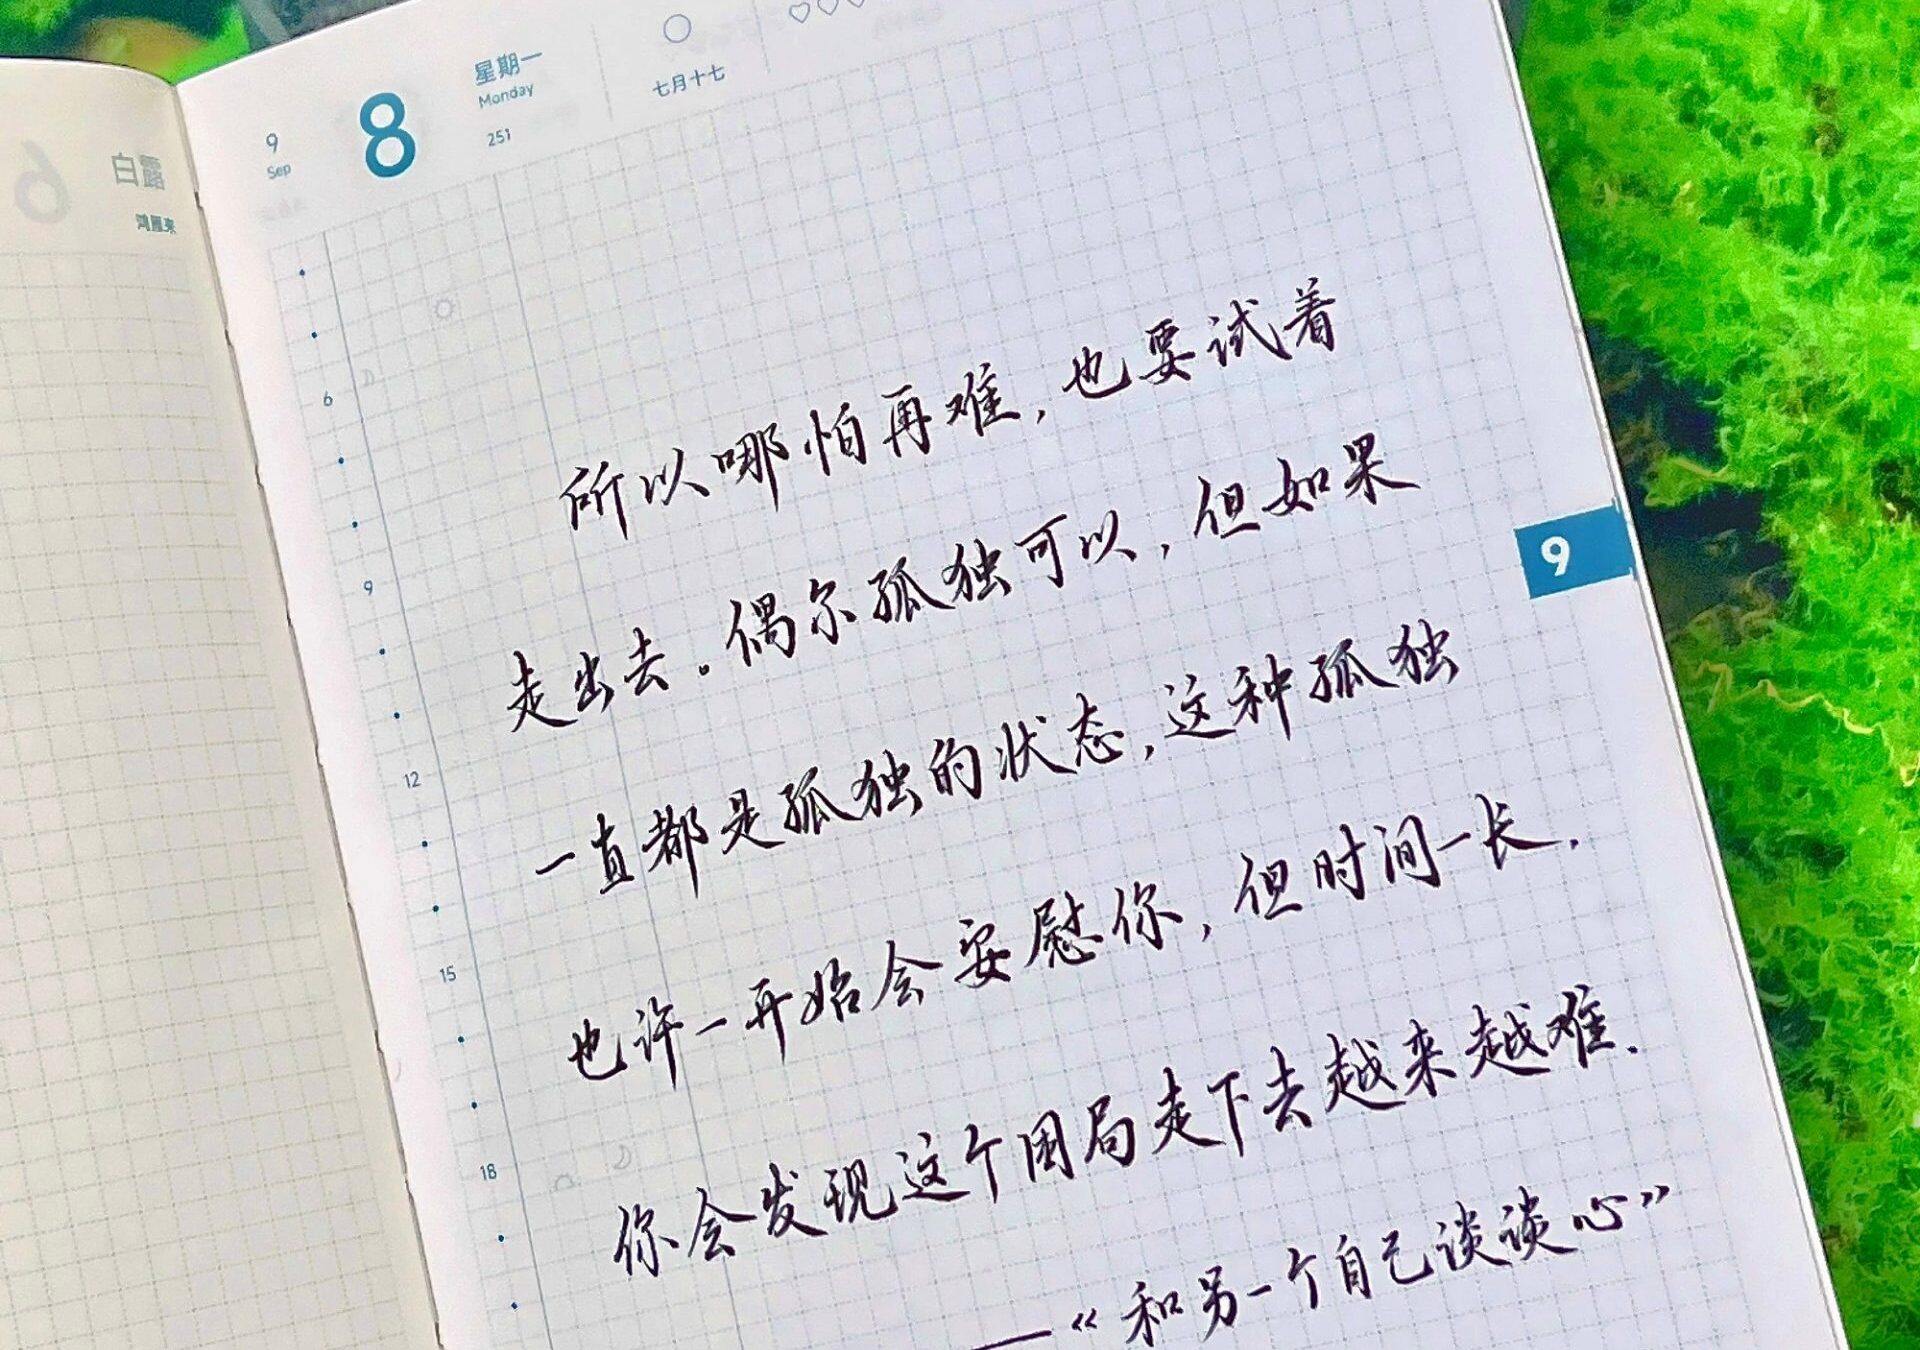 白露
鸿雁来
9
Sep
8
星期一
Monday
251
七月十七
所以哪怕再难，也要试着
走出去。偶尔孤独可以，但如果
一直都是孤独的状态，这种孤独
也许一开始会安慰你，但时间一长.
你会发现这个困局走下去越来越难.
——《和另一个自己谈谈心》
6
9
12
15
18
9